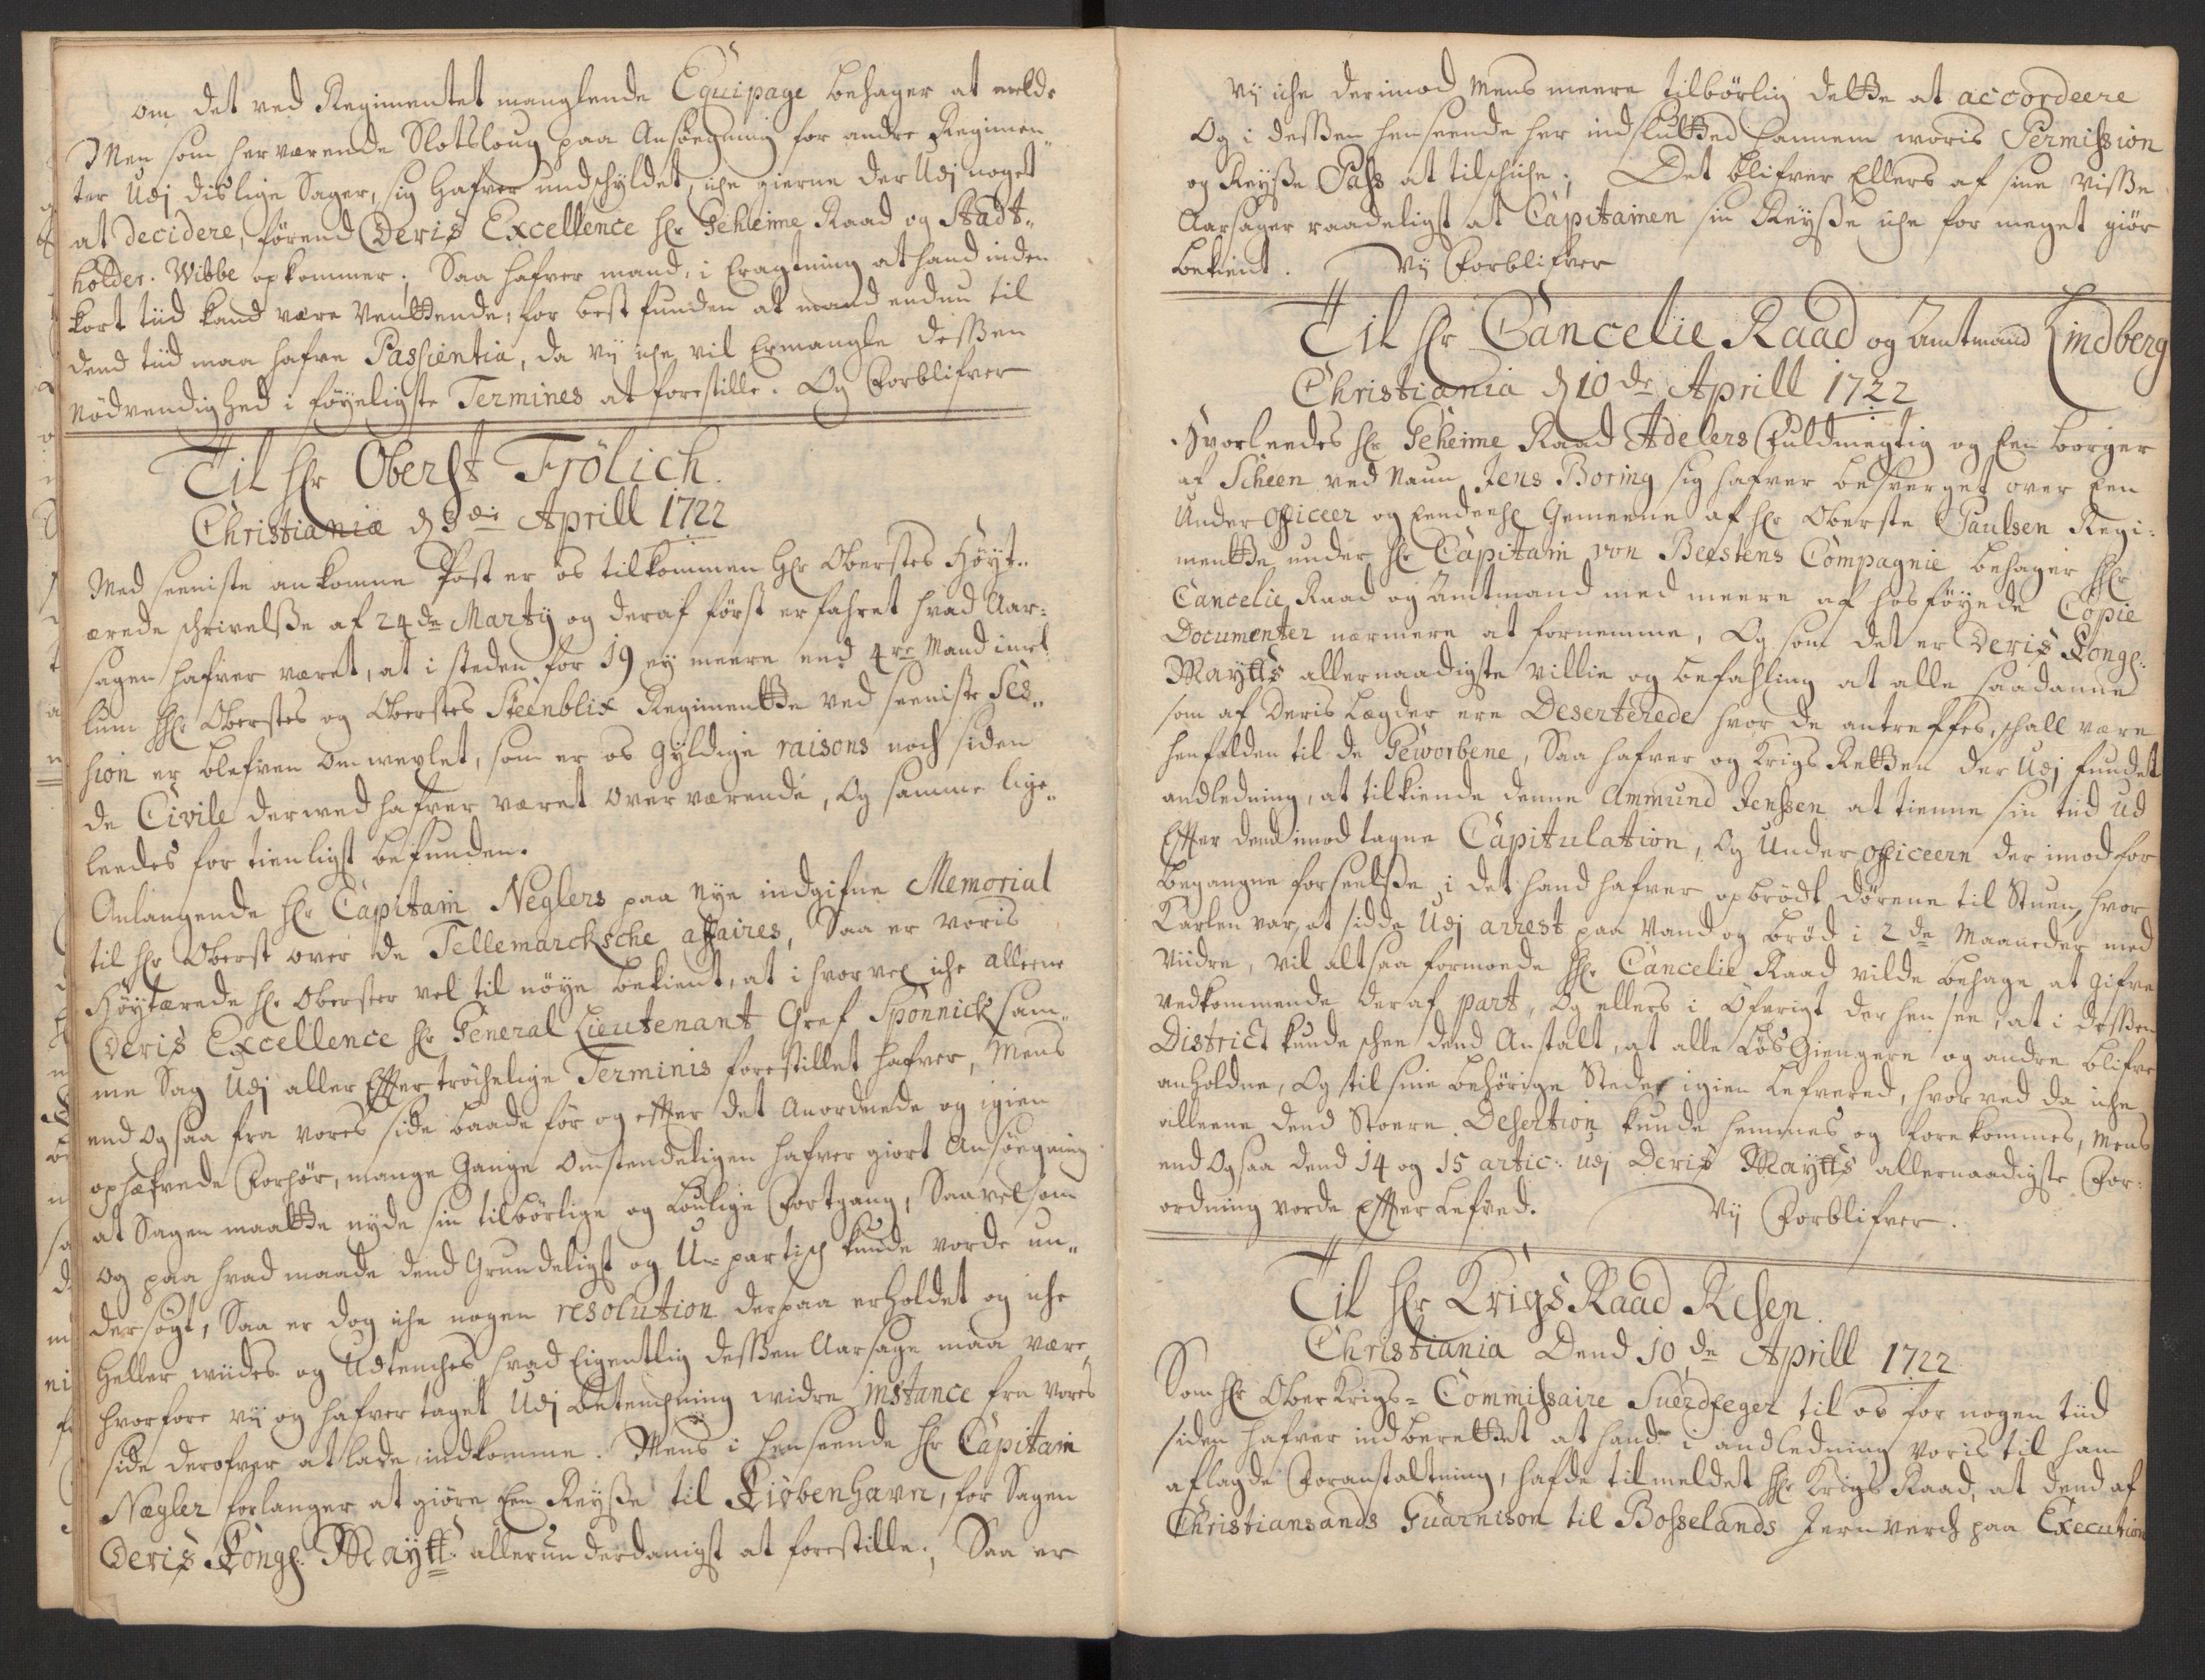 om det ved Regimentet manglende Equipage behager at melde
Men som herværende Slotsloug paa Ansøegning for andre Regimen¨
ter Udj dislige Sager, sig hafver undschyldet, iche gierne der Udj noget
at decidere, førend Deris Excellence Hr Geheime Raad og Stadt¨
holder Wibbe opkommer; Saa hafver mand, i Eragtning at hand inden
kort tiid kand være Venttende, for best funden at mand endnu til
dend tiid maa hafve Patientia, da vij iche vil Ermangle dessen
Nødvendighed i føyeligste Termines at forestille. Og Forblifver
Til Hr Oberst Frölich.
Christiania d 3die Aprill 1722
Med seeniste ankomne Post er os tilkommen Hr Oberstes Høyt¨
ærede schrivelsse af 24de Martij og deraf først erfahret hvad Aar¨
sagen hafver været, at i steden for 19 ej meere end 4re Mand imel¨
lum Hr Oberstes og Oberstes Steenblix Regimentte ved seeniste Ses¨
sion er blefven omvexlet, som er os gyldige raisons noch siden
de Civile derved hafver været overværende, og samme lige¨
leedes for tienligst befunden.
Anlangende Hr Capitain Neglers paa nye indgifne Memorial
til Hr Oberst over de Tellemarcksche affaires, Saa er voris
Høytærede Hr Oberster vel til nøye bekient, at i hvor vel iche alleene
Deris Excellence Hr General Lieutenant Gref Sponnick sam¨
me Sag Udj aller Eftertrøchelige Terminis forestillet hafver, Mens
end og saa fra vores side baade før og efter det Anordnede og igien
ophæfvede Forhør, mange Gange omstendeligen hafver giort Ansøegning
at Sagen maatte nyde sin tilbørlige og Loulige Fortgang, Saavelsom
og paa hvad maade dend Grundeligst og U-partisch kunde vorde un¨
dersøgt, Saa er dog iche nogen resolution derpaa erholdet og iche
Heller viides og Udtenches hvad Eigentlig dessen Aarsage maa være,
hvorfore vij og hafver taget Udj betenchning widre instance fra vores
side derofver at lade indkomme. Mens i henseende Hr Capitain
Nægler forlanger at giøre Een Reysse til Kiøbenhavn, for Sagen
Deris Kongl. Maytt. allerunderdanigst at forestille., Saa er
Vij iche derimod Mens meere tilbørlig dette at accordeere
Og i dessen henseende her indsluttted hannem woris Permission
og Reysse Pass at tilschiche; Det blifver Ellers af sine visse
Aarsager raadeligst at Capitainen sin Reysse iche for meget giør
bekient. Vij Forblifver
Til Hr Cancelie Raad og Amtmand Lindberg
Christiania d 10de Aprill 1722
Hvorleedes Hr Geheime Raad Adelers Fuldmegtig og Een borger
af Scheen ved Naun Jens Boring sig hafver besverget over Een
Under officeer og Eendeehl Gemeene af Hr Oberste Paulsen Regi¨
mentte under Hr Capitain von Beestens Compagnie behager Hr
Cancelie Raad og Amtmand med meere af hosføyede Copie
Documenter nærmere at fornemme, Og som det er Deris Kongl.
Maytts allernaadigste Villie og befahling at alle saadanne
som af Deris Lægder ere Deserterede hvor de antreffes, schall være
henfalden til de Geworbene, Saa hafver og Krigs Retten der Udj fundet
andledning, at tilkiende denne Ammund Jenssen at tienne sin tiid ud
Efter dend imod tagne Capitulation, Og Under officeern der imod for
begangne forseelsse i det hand hafver opbrødt dørene til Stuen, hvor
Karlen var, at sidde Udj arrest paa Vand og Brød i 2de Maaneder med
Viidre, vil altsaa formoede Hr Cancelie Raad vilde behage at gifve
vedkommende deraf part, Og ellers i øfrigt der hen see, at i dessen
District kunde schee dend Anstalt, at alle Løs Giengere og andre blifve
anholdne, Og til sine behørige Steder igien Lefvered, hvor ved da iche
alleene dend Stoere Desertion kunde hemmes og forekommes, Mens
end og saa dend 14 og 15 artic: udj Deris Maytts allernaadigste For¨
ordning vorde Efterlefved. Vij Forblifver.
Til Hr Krigs Raad Resen.
Christiania Dend 10de Aprill 1722
Som Hr Ober Krigs= Commissaire Suerdfeger til os for nogen tiid
siden hafver indberettet at hand i andledning voris til ham
aflagde Foranstaltning, hafde tilmeldet Hr Krigs Raad, at dend af
Christiansands Guarnison til Bosselands Jernverch paa Execution